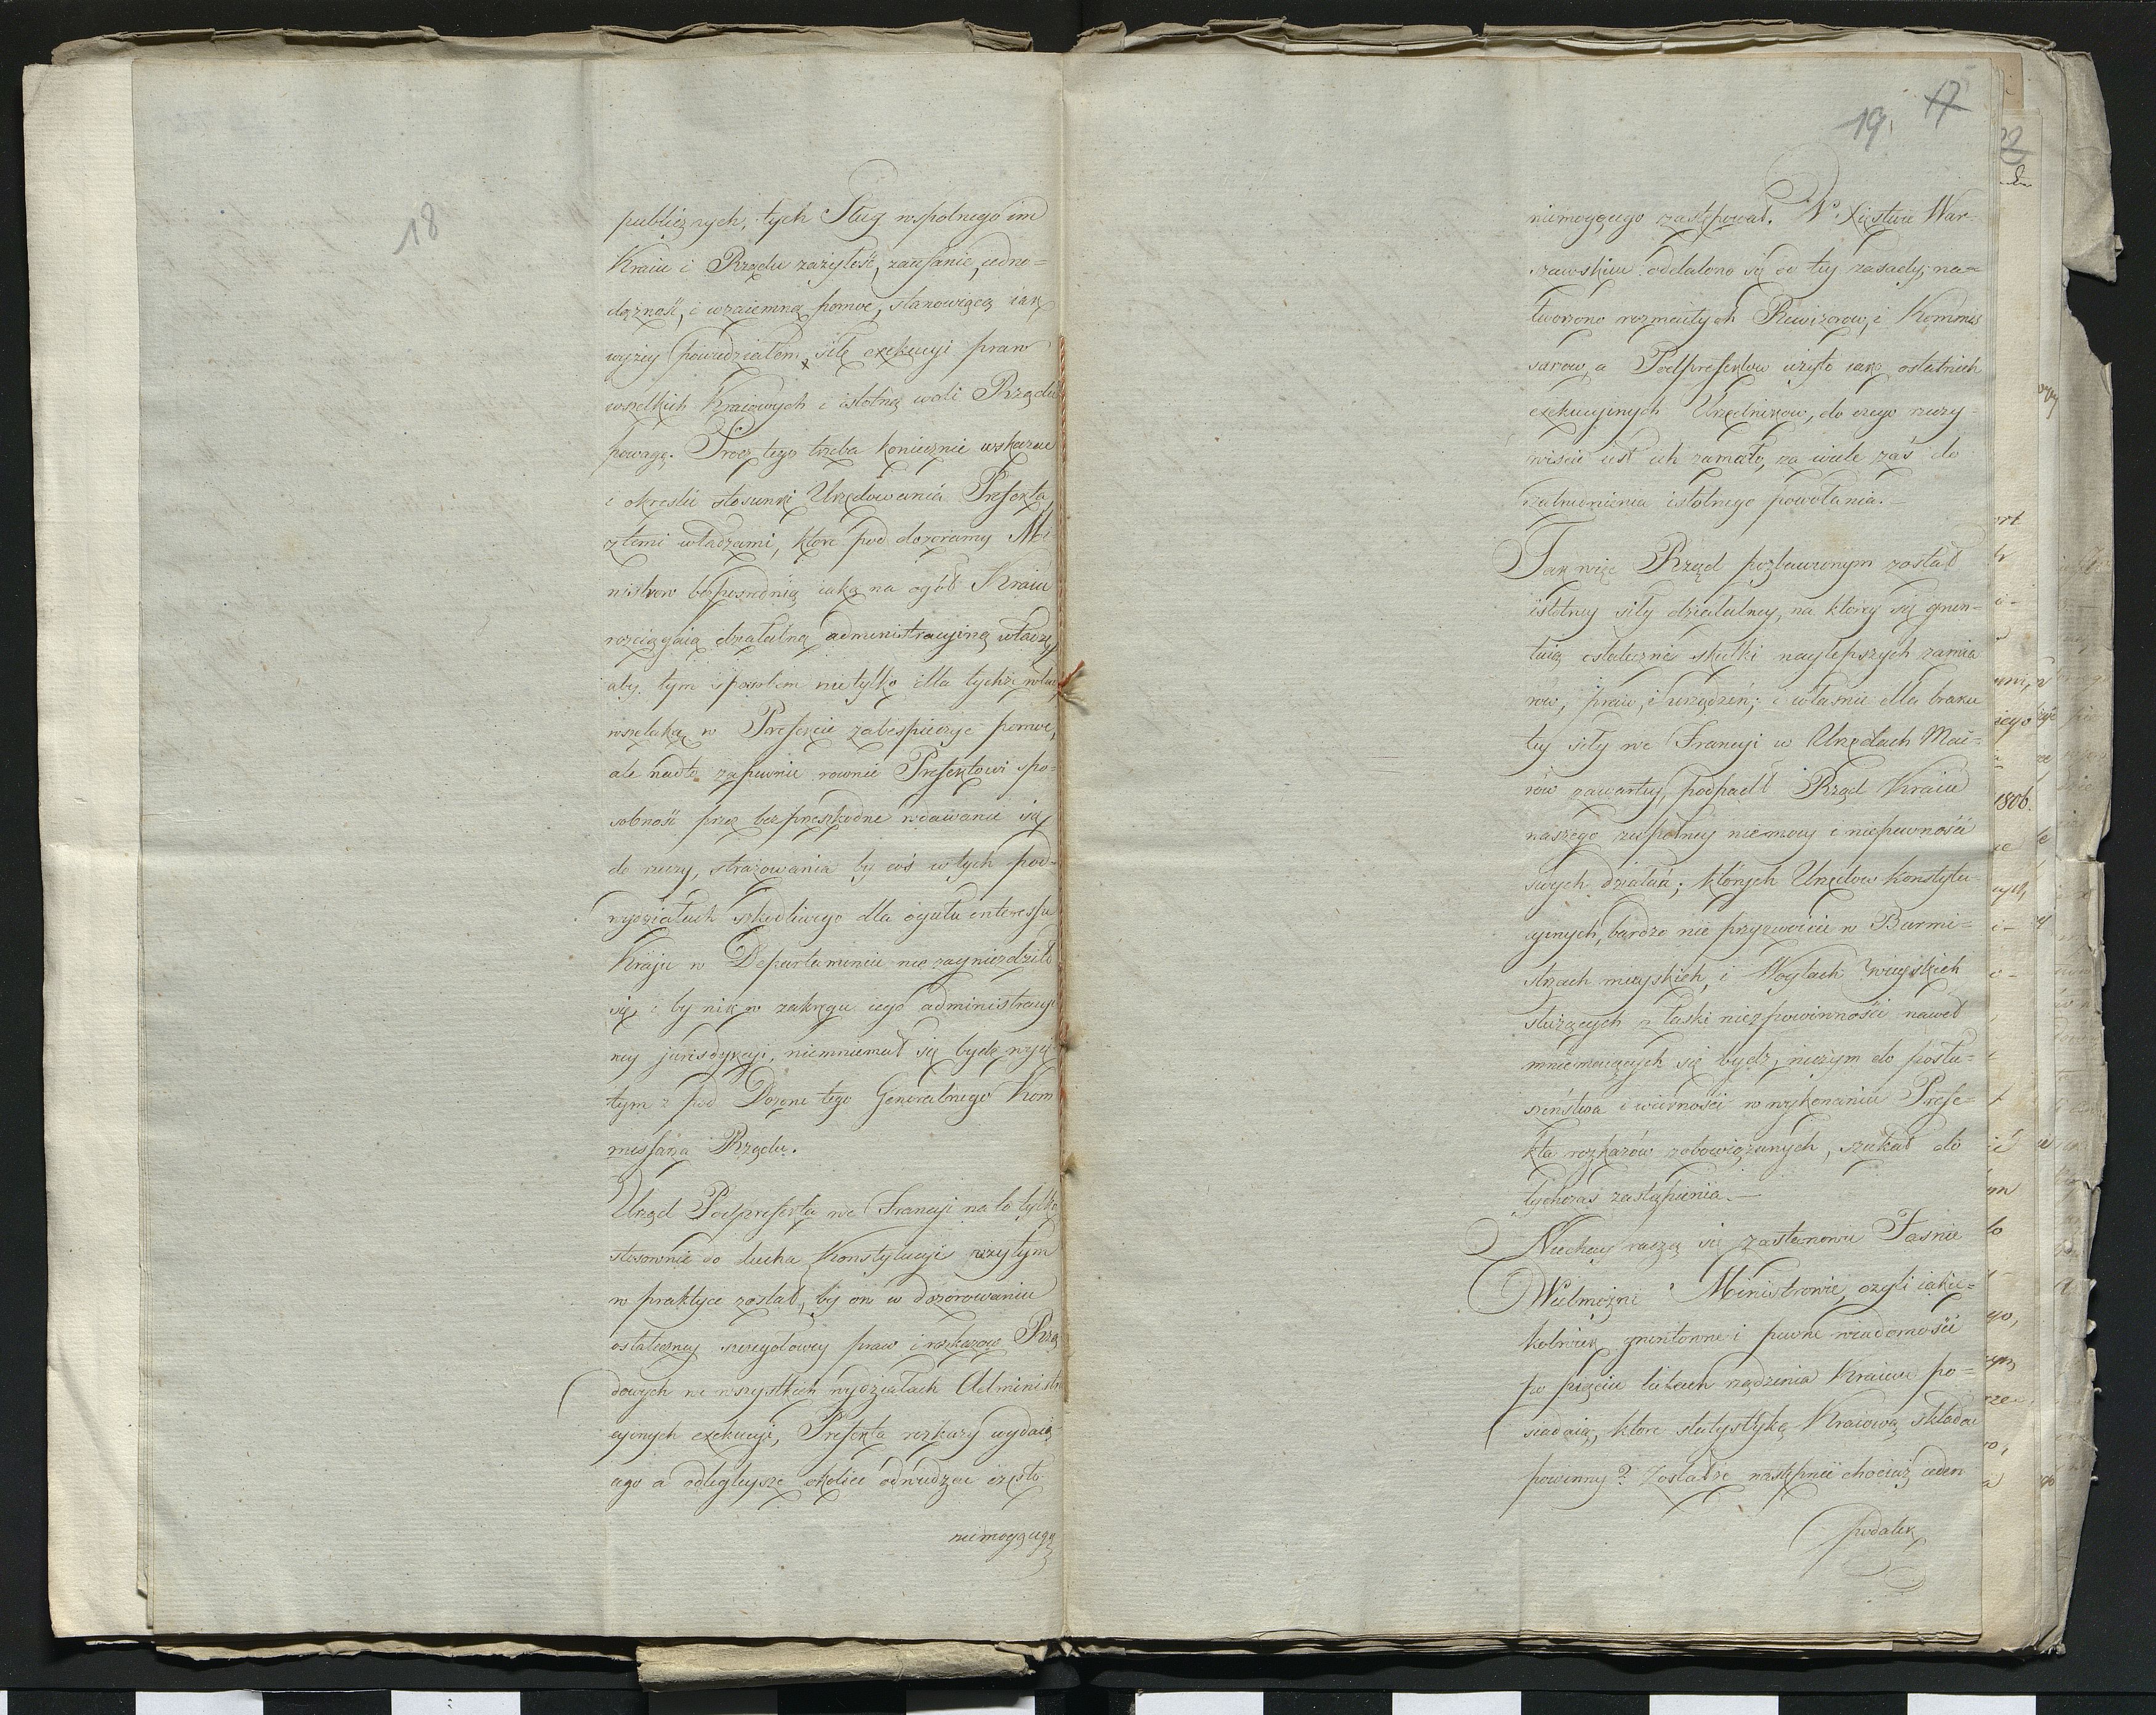 18
publicznych, tych Sług wspolnego im
Kraiu i Rządu zażyłość, zaufanie, iedno=
dążność, i wzaiemną pomoc, stanowiącą iak
wyżey powiedziałem siłę exekucyi praw
wszelkich Kraiowych i istotną woli Rządu
powagę. Procz tego trzeba koniecznie wskazać
i okreslić stosunki Urzędowania Prefekta,
z temi władzami, ktore pod dozorami Mi
nistrow bezposrednią iaką na ogół Kraiu
rosciągaią działalną administracyiną władzę
aby tym sposobem nie tylko dla tychże władz
wszelaką w Prefekcie zabespieczyć pomoc,
ale nadto zapewnić rownie Prefektowi spo=
sobność przez bezprzeszkodne wdawanie się
do rzeczy, strażowania by coś w tych pod=
wydziałach szkodliwego dla ogułu interessu
Kraju w Departamencie nie zagnieździło
się, i by nikt w zakręgu iego administracyi
ney jurisdykcyi, niemniemał się bydź wyję
tym z pod Dozoru tego Generalnego Kom
missarza Rządu.
Urząd Podprefekta we Francyi na to tylko
stosownie do ducha Konstytucyi użytym
w praktyce został, by on w dozorowaniu
ostateczney szczegołowey praw i rozkazow Rzą
dowych we wszystkich wydziałach Administra
cyinych exekucyi, Prefekta rozkazy wydaią
cego a odlegleysze okolice odwiedzać często
niemogącego
19. 17
niemogącego zastępował. W Xięstwie War=
szawskim oddalono się od tey zasady; na=
tworzono rozmaitych Rewizorow, i Kommis
sarow, a Podprefektow użyto iako ostatnich
exekucyinych Urzędnikow, do czego rzeczy=
wiscie iest ich zamało, za wiele zaś do
zatrudnienia istotnego powołania.—
Tak więc Rząd pozbawionym został
istotney siły działalney, na ktorey się grun=
tuią ostateczne skutki naylepszych zamia
row, praw, i urządzeń; i własnie dla braku
tey siły we Francyi w Urzędach Mai=
rów zawartey, podpadł Rząd Kraiu
naszego zupełney niemocy i niepewności
swych działań; ktorych Urzędow Konstytu=
cyinych, bardzo nie przyzwoicie w Burmi=
strzach mieyskich, i Woytach wieyskich
służących z łaski nie z powinności nawet
mniemaiących się bydź, niczym do posłu=
szeństwa i wierności w wykonaniu Prefe=
kta rozkazów zobowiązanych, szukał do
tychczas zastąpienia.—
Niechay raczą się zastanowić Jasnie
Wielmożni Ministrowie, czyli iakie=
kolwiek gruntowne i pewne wiadomości
po pięciu latach rządzenia Kraiem po=
siadaią, ktore statystykę Kraiową składać
powinny? Zostałże następnie chociaż ieden
podatek